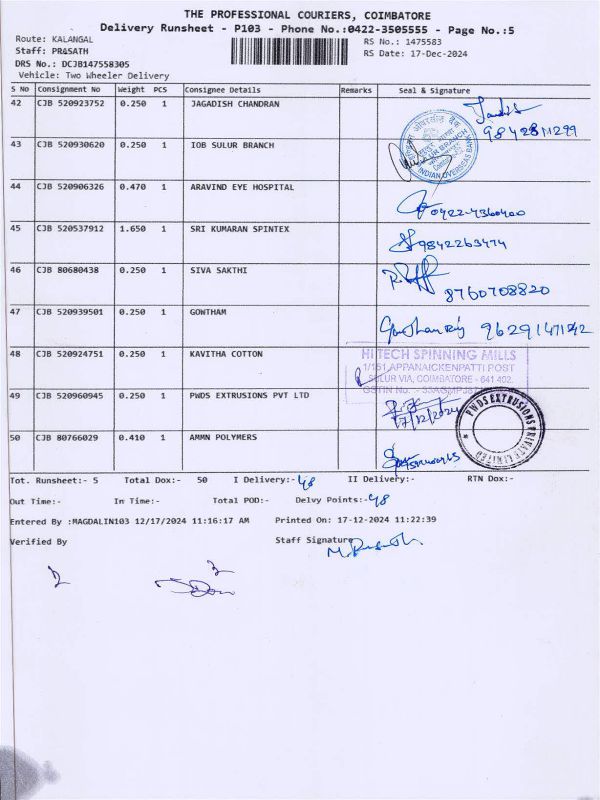 THE PROFESSIONAL COURIERS, COIMBATORE
Delivery Runsheet - P103 - Phone No.:0422-3505555 - Page No.:5
Route: KALANGAL
RS No.: 1475583
Staff: PRASATH
RS Date: 17-Dec-2024
DRS No.: DCJB147558305
Vehicle: Two Wheeler Delivery
S No Consignment No Weight PCS Consignee Details Remarks Seal & Signature
42 CJB 520923752 0.250 1 JAGADISH CHANDRAN
43 CJB 520930620 0.250 1 IOB SULUR BRANCH
INDIAN OVERSEAS BANK
44 CJB 520906326 0.470 1 ARAVIND EYE HOSPITAL
0422-4360400
45 CJB 520537912 1.650 1 SRI KUMARAN SPINTEX
9842263474
46 CJB 80680438 0.250 1 SIVA SAKTHI
8760708820
47 CJB 520939501 0.250 1 GOWTHAM
48 CJB 520924751 0.250 1 KAVITHA COTTON
HITECH SPINNING MILLS
1/151 APPANAICKENPATTI POST
SULUR VIA, COIMBATORE - 641 402.
49 CJB 520960945 0.250 1 PWDS EXTRUSIONS PVT LTD
17/12/2024
PWDS EXTRUSIONS PRIVATE LIMITED
50 CJB 80766029 0.410 1 AMMN POLYMERS
Tot. Runsheet:- 5 Total Dox:- 50 I Delivery:- 48 II Delivery:- RTN Dox:-
Out Time:- In Time:- Total POD:- Delvy Points:- 48
Entered By :MAGDALIN103 12/17/2024 11:16:17 AM Printed On: 17-12-2024 11:22:39
Verified By Staff Signature